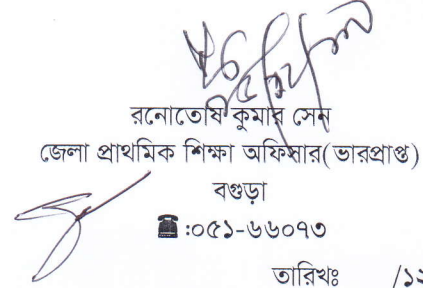 রনোতোষ কুমার সেন
জেলা প্রাথমিক শিক্ষা অফিসার(ভারপ্রাপ্ত)
বগুড়া
☎:০৫১-৬৬০৭৩
তারিখঃ /১২